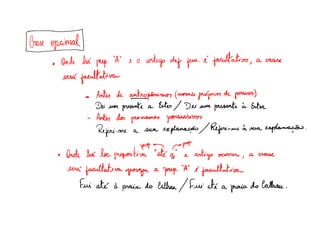 Crase opcional
• Onde há prep "A" e o artigo def fem é facultativo, a crase
será facultativa
- Antes de antropônimos (nomes próprios de pessoas)
Dei um presente a Ester / Dei um presente à Ester.
- Antes dos pronomes possessivos
Referi-me a sua explanação / Referi-me à sua explanação.
prep prep
• Onde há loc prepositiva "até a" e artigo ocorrer, a crase
será facultativa porque a prep "A" é facultativa
Fui até à praia do Calhau / Fui até a praia do Calhau.